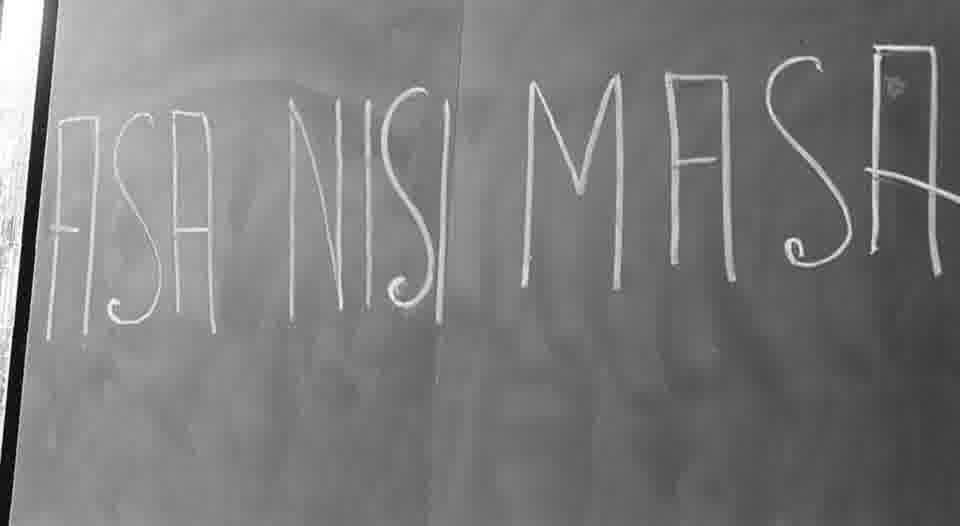 ASA NISI MASA